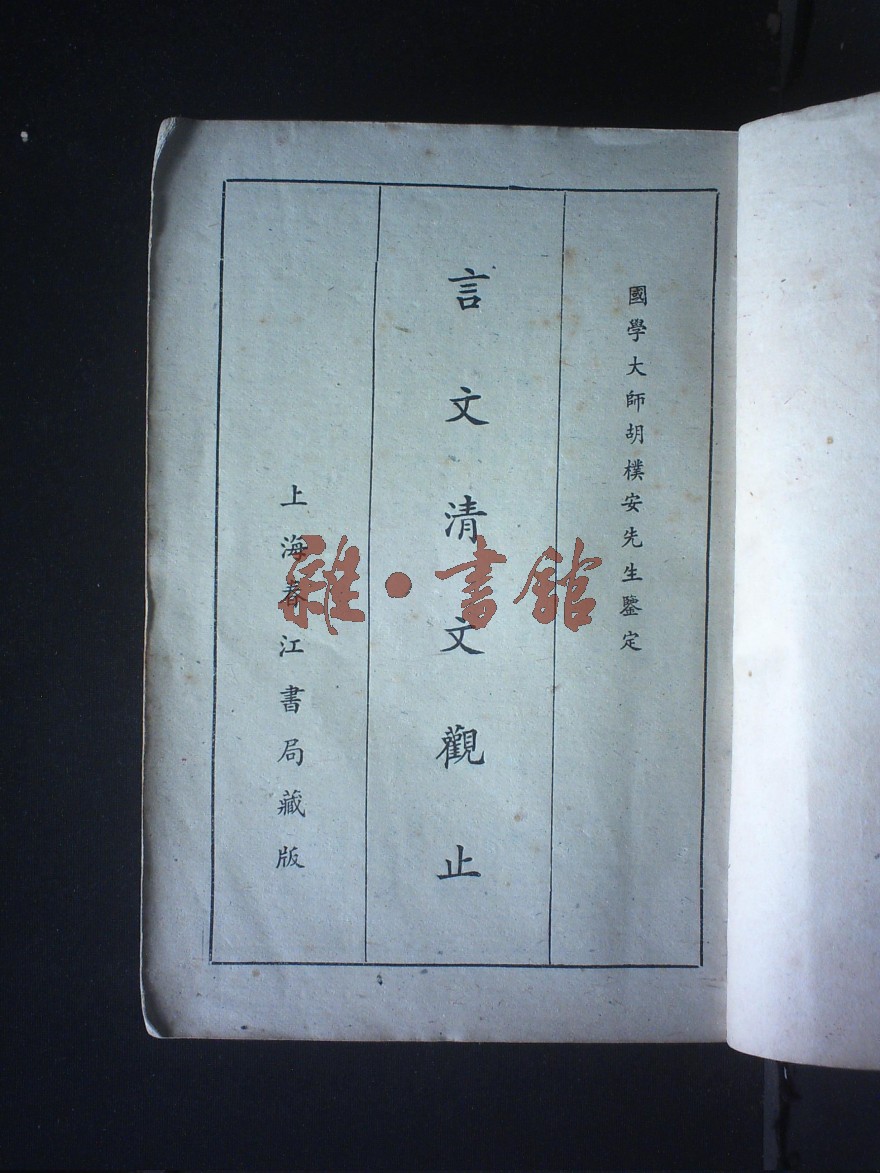 國學大師胡樸安先生鑒定
言文清文觀止
上海春江書局藏版
雜·書館